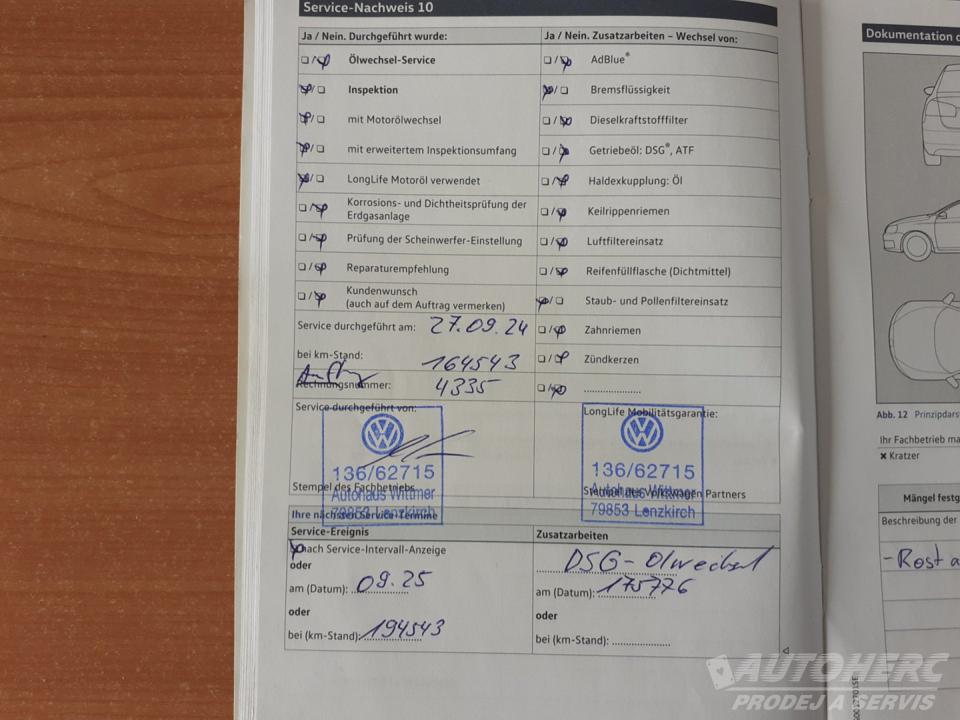 Service-Nachweis 10
Ja / Nein. Durchgeführt wurde:
Ölwechsel-Service
Inspektion
mit Motorölwechsel
mit erweitertem Inspektionsumfang
LongLife Motoröl verwendet
Korrosions- und Dichtheitsprüfung der
Erdgasanlage
Prüfung der Scheinwerfer-Einstellung
Reparaturempfehlung
Kundenwunsch
(auch auf dem Auftrag vermerken)
Service durchgeführt am: 27.09.24
bei km-Stand: 164543
Rechnungsnummer: 4335
Service durchgeführt von:
136/62715
Stempel des Fachbetriebs
Autohaus Wittmer
79853 Lenzkirch
Ja / Nein. Zusatzarbeiten – Wechsel von:
AdBlue®
Bremsflüssigkeit
Dieselkraftstofffilter
Getriebeöl: DSG®, ATF
Haldexkupplung: Öl
Keilrippenriemen
Luftfiltereinsatz
Reifenfüllflasche (Dichtmittel)
Staub- und Pollenfiltereinsatz
Zahnriemen
Zündkerzen
LongLife Mobilitätsgarantie:
136/62715
Autohaus Wittmer
Stempel des Volkswagen Partners
79853 Lenzkirch
Ihre nächsten Service-Termine
Service-Ereignis
nach Service-Intervall-Anzeige
oder
am (Datum): 09.25
oder
bei (km-Stand): 194543
Zusatzarbeiten
DSG-Ölwechsel
am (Datum): 175776
oder
bei (km-Stand):
Dokumentation
Abb. 12 Prinzipdars
Ihr Fachbetrieb ma
✖ Kratzer
Mängel festg
Beschreibung der
-Rost a
AUTOHERC
PRODEJ A SERVIS